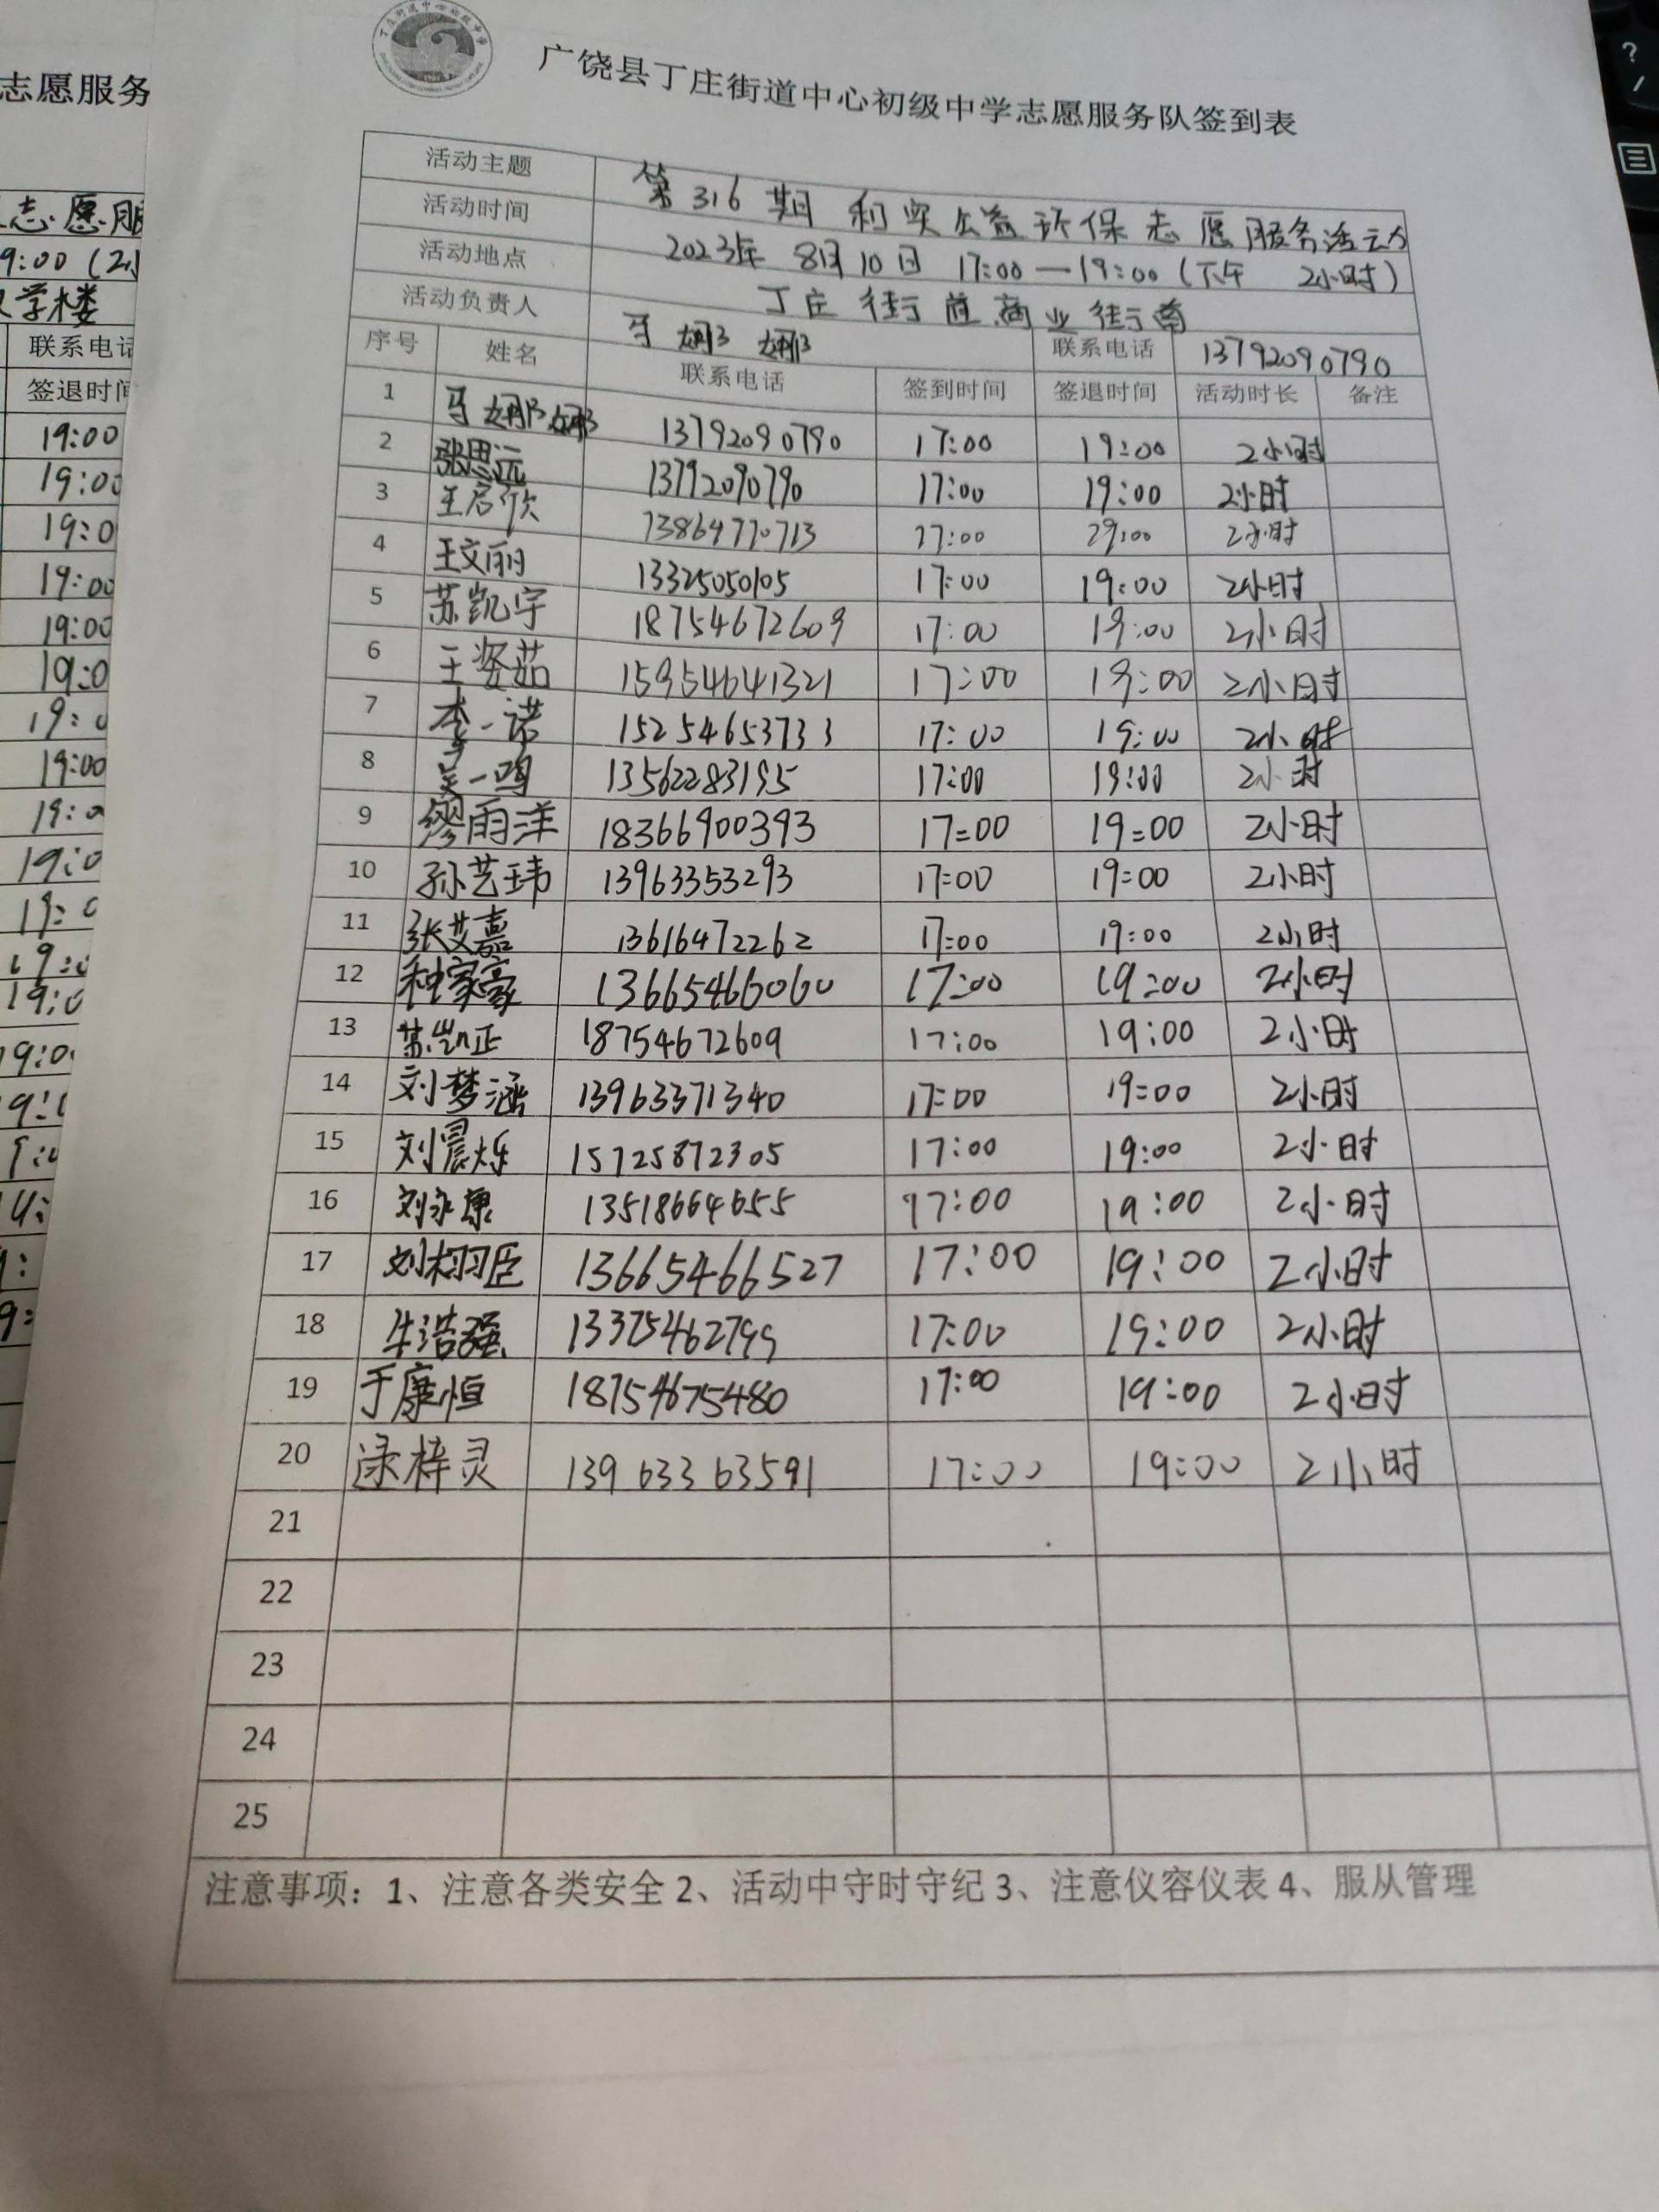 广饶县丁庄街道中心初级中学志愿服务队签到表
活动主题 第316期 利实公益环保志愿服务活动
活动时间 2023年 8月10日 17:00—19:00(下午 2小时)
活动地点 丁庄街 商业街南
活动负责人 马娜娜 联系电话 13792090790
序号 姓名 联系电话 签到时间 签退时间 活动时长 备注
1 马娜娜 13792090790 17:00 19:00 2小时
2 张思远 13792090790 17:00 19:00 2小时
3 王启欣 13864770713 17:00 19:00 2小时
4 王文丽 13325050105 17:00 19:00 2小时
5 苏凯宇 18754672609 17:00 19:00 2小时
6 王姿茹 15954641321 17:00 19:00 2小时
7 李一诺 15254653733 17:00 19:00 2小时
8 吴一鸣 13562283195 17:00 19:00 2小时
9 缪雨洋 18366900393 17:00 19:00 2小时
10 孙艺玮 13963353293 17:00 19:00 2小时
11 张艾嘉 13616472262 17:00 19:00 2小时
12 种家豪 13665466060 17:00 19:00 2小时
13 苏凯正 18754672609 17:00 19:00 2小时
14 刘梦涵 13963371340 17:00 19:00 2小时
15 刘晨烁 15725872305 17:00 19:00 2小时
16 刘永康 13518664655 17:00 19:00 2小时
17 刘栩臣 13665466527 17:00 19:00 2小时
18 牛浩强 13375462799 17:00 19:00 2小时
19 于康恒 18754675480 17:00 19:00 2小时
20 逯梓灵 13963363591 17:00 19:00 2小时
21
22
23
24
25
注意事项：1、注意各类安全 2、活动中守时守纪 3、注意仪容仪表 4、服从管理
志愿服务
志愿服
9:00(2小
学楼
联系电话
签退时间
19:00
19:00
19:0
19:00
19:00
19:0
19:0
19:00
19:0
19:0
19:0
19:0
19:0
19:0